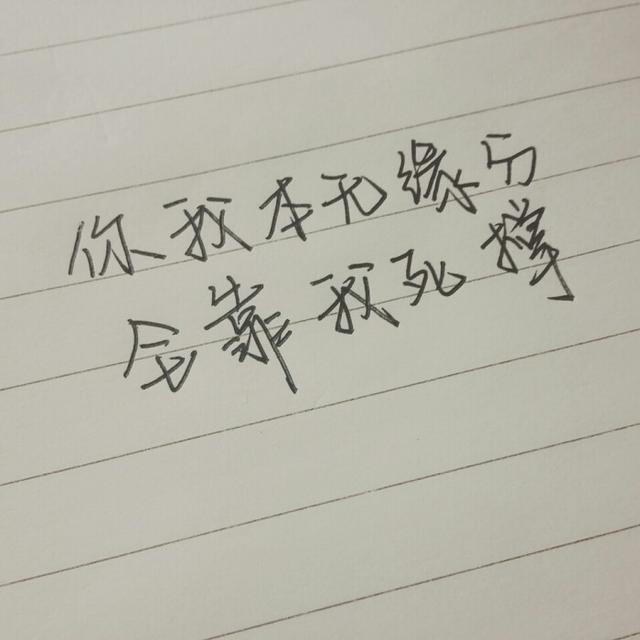 你我本无缘分
全靠我死撑